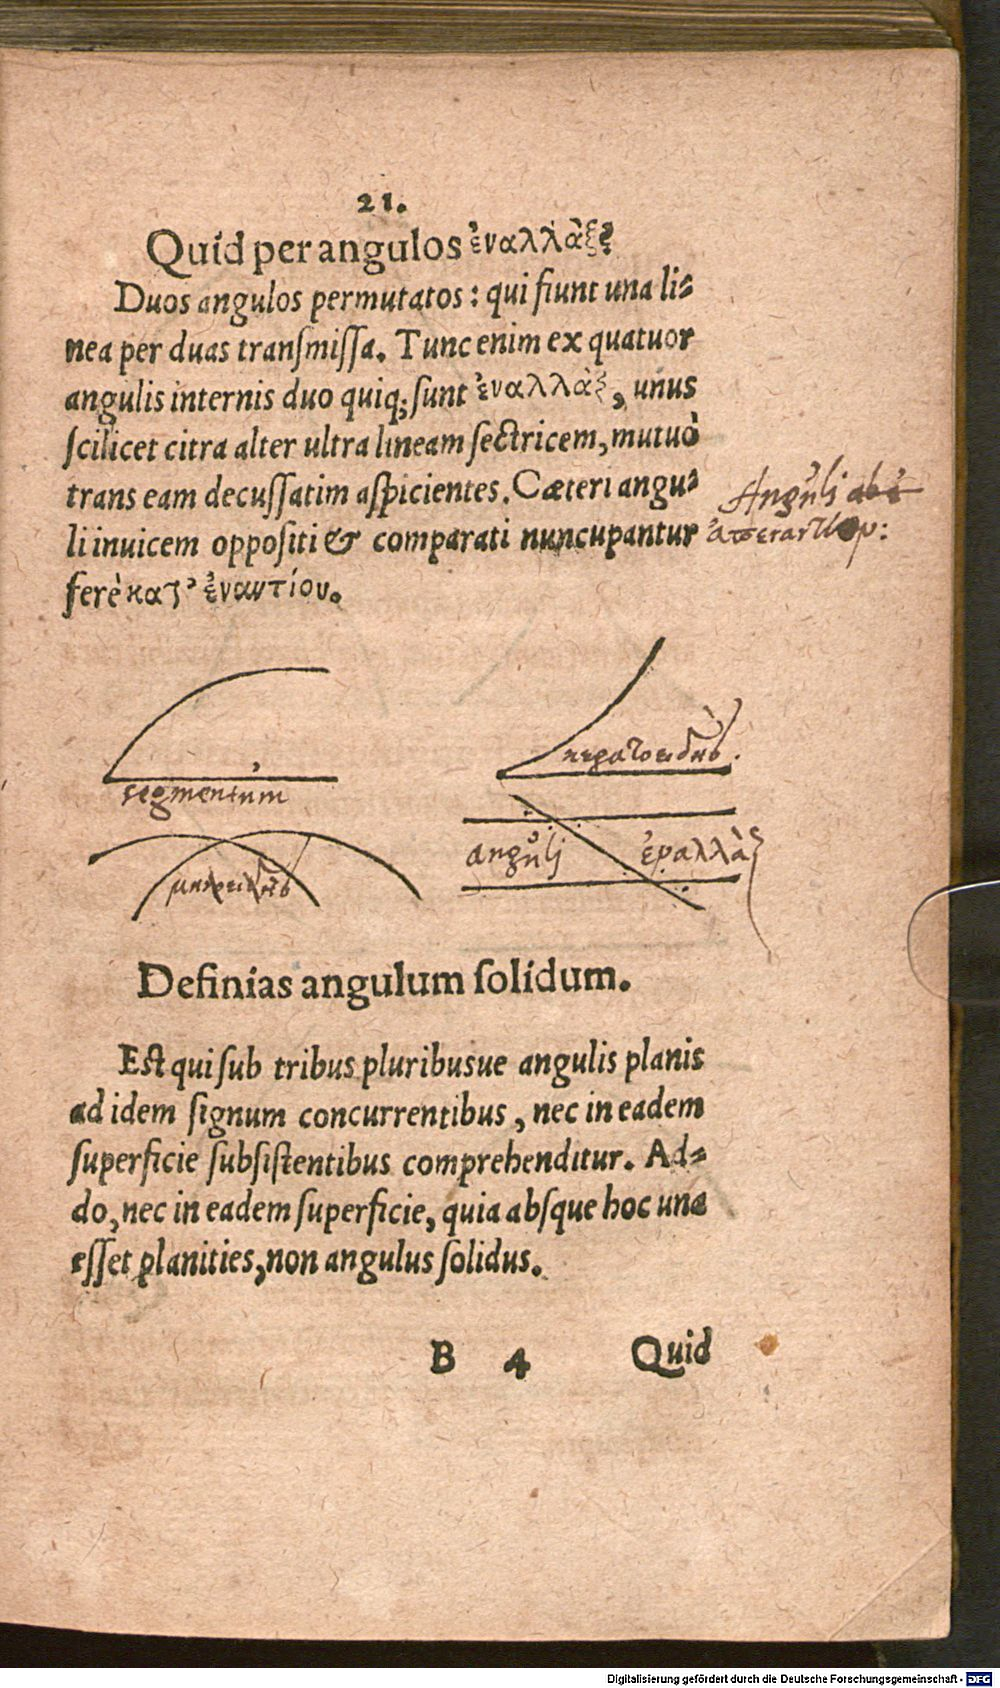 21.
Quid per angulos ἐναλλὰξ?
Duos angulos permutatos: qui fiunt una li-
nea per duas transmissa. Tunc enim ex quatuor
angulis internis duo quiq; sunt ἐναλλὰξ, unus
scilicet citra alter ultra lineam sectricem, mutuò
trans eam decussatim aspicientes. Cæteri angu-
li inuicem oppositi & comparati nuncupantur
ferè κατ' ἐναντίου.
Anguli
segmentum
κερατοειδής.
anguli ἐναλλὰξ
Definias angulum solidum.
Est qui sub tribus pluribusue angulis planis
ad idem signum concurrentibus, nec in eadem
superficie subsistentibus comprehenditur. Ad-
do, nec in eadem superficie, quia absque hoc una
esset planities, non angulus solidus.
B 4 Quid
Digitalisierung gefördert durch die Deutsche Forschungsgemeinschaft - DFG